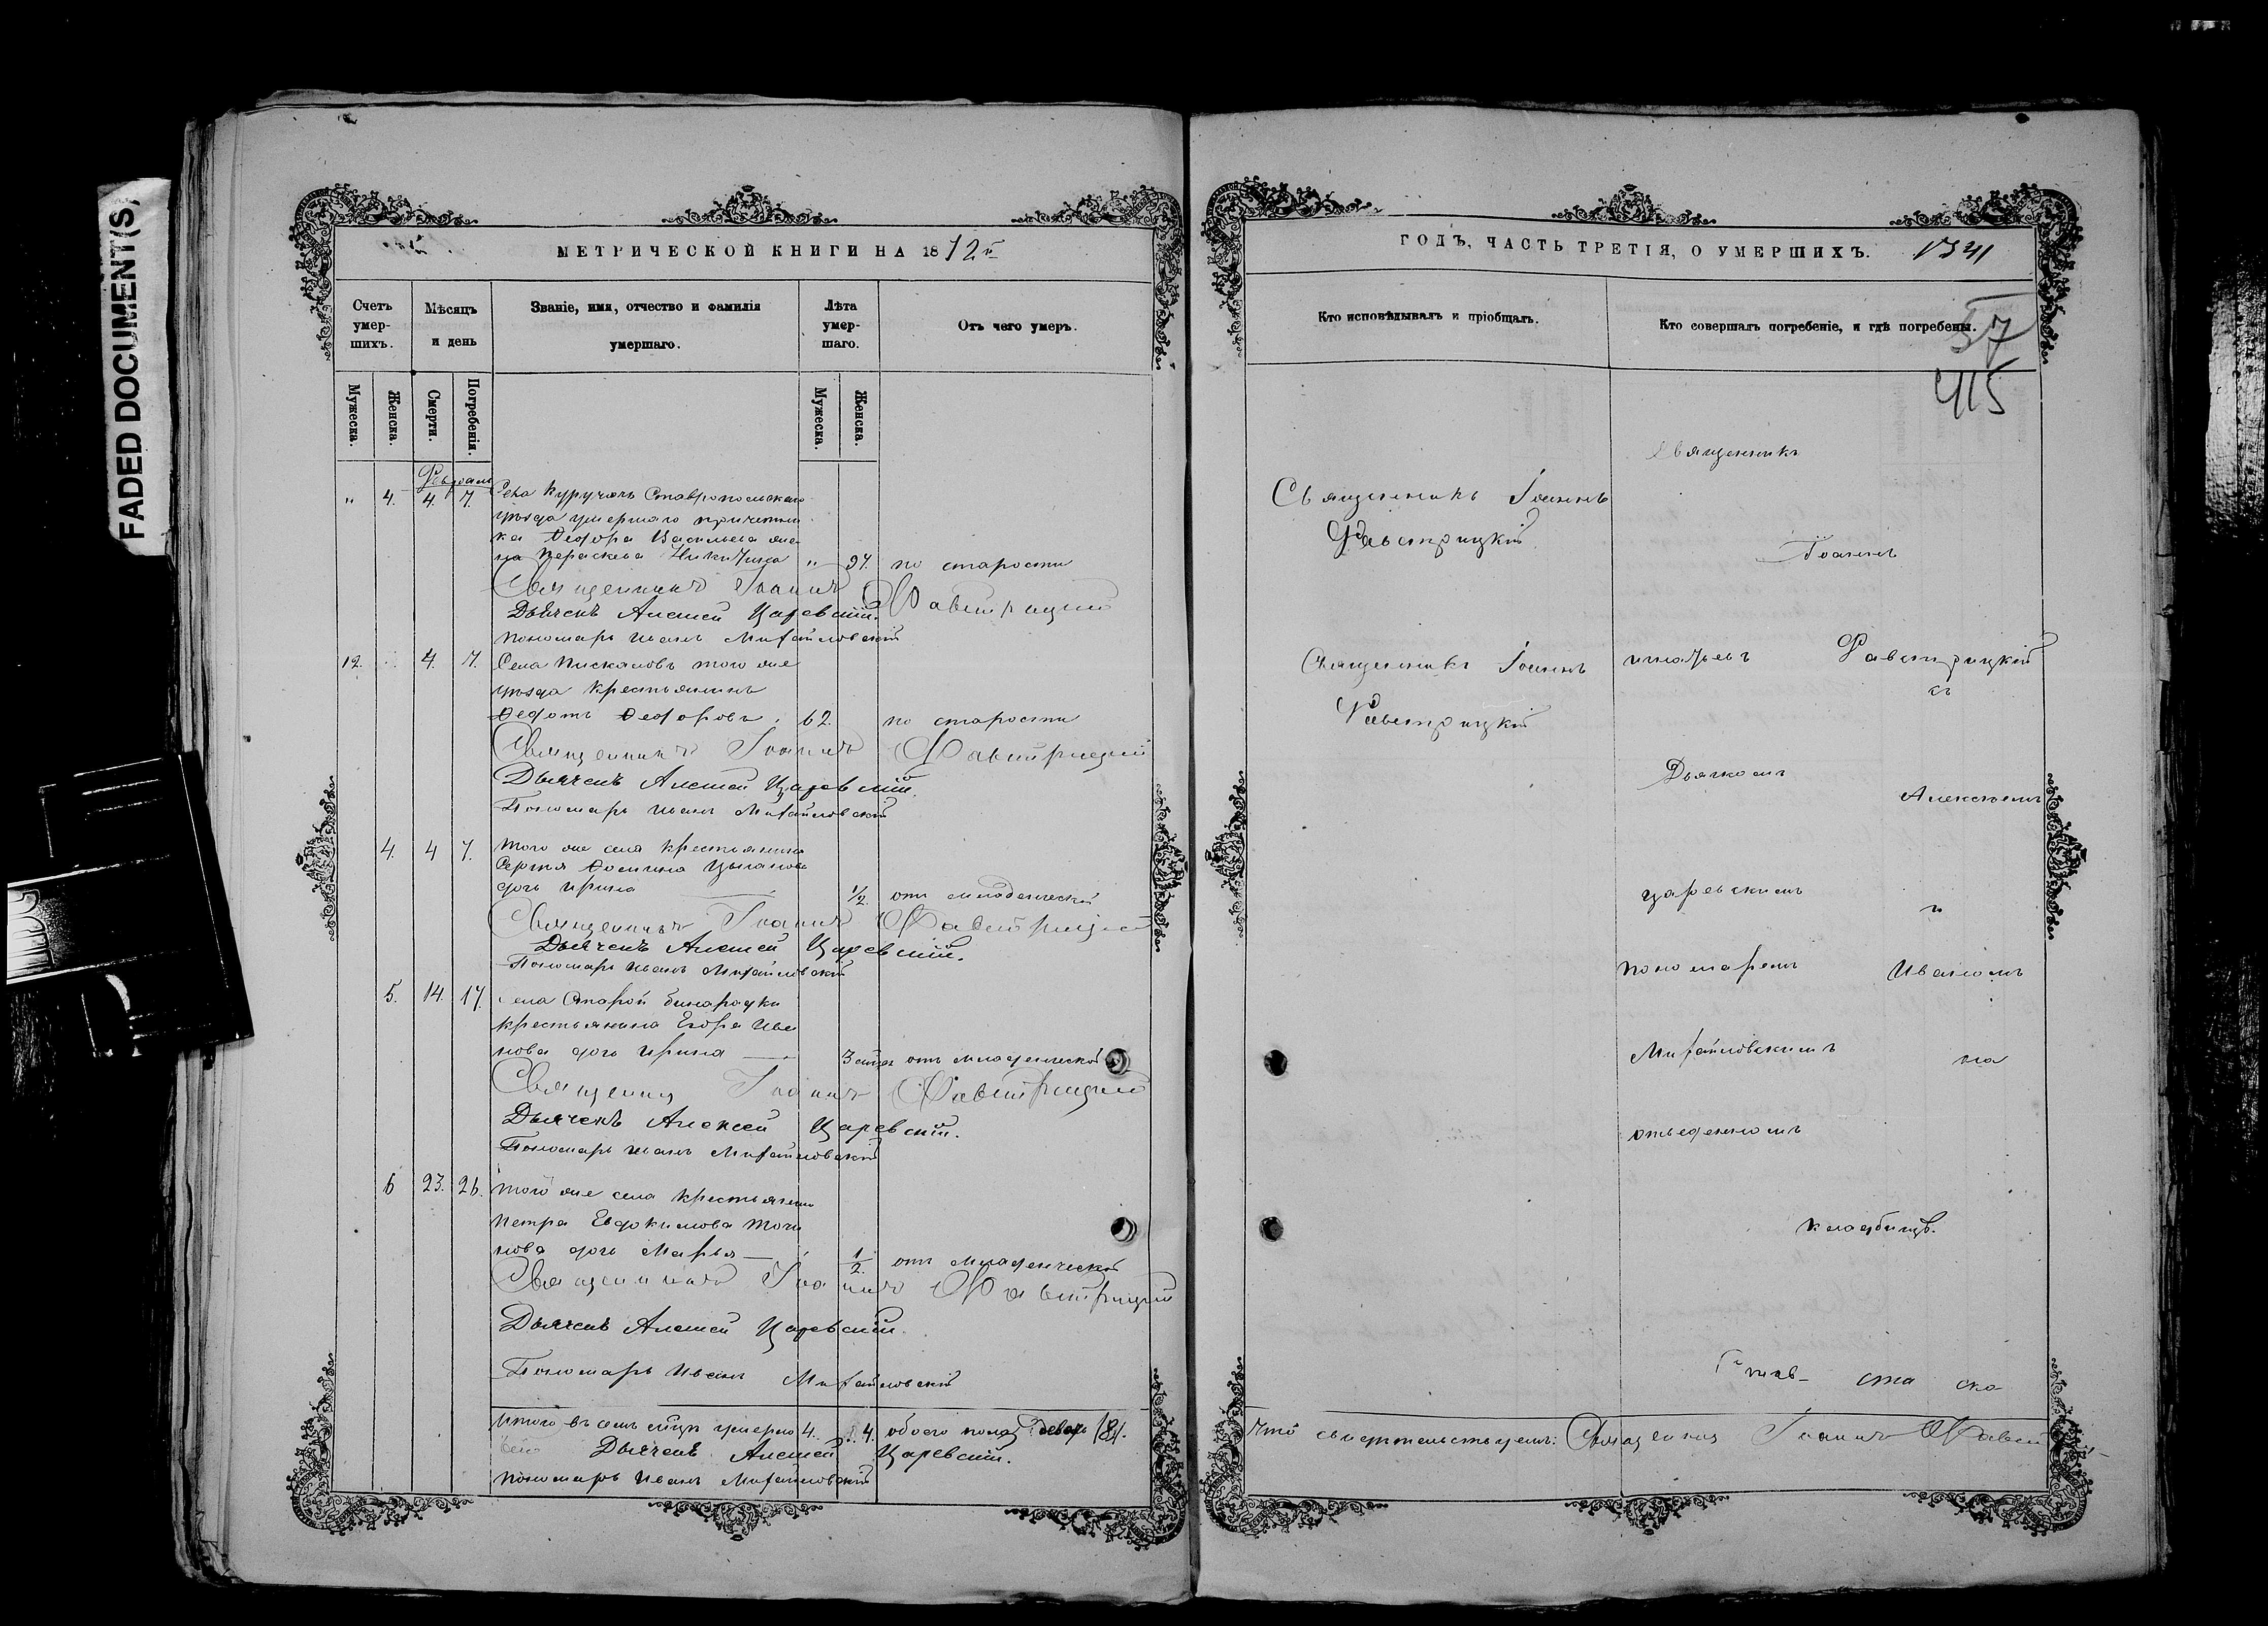 FADED DOCUMENT(S)
МЕТРИЧЕСКОЙ КНИГИ НА 1872й
Счетъ умер-шихъ.
Мѣсяцъ и день
Званіе, имя, отчество и фамилія умершаго.
Лѣта умер-шаго.
Отъ чего умеръ.
Мужеска.
Женска.
Смерти.
Погребенія.
Мужеска.
Женска.
Февраль
" 4. 4. 7. Села Куручомъ Ставропольскаго
уѣзда умершаго причетни
ка Ѳедора Васильева же
на Параскева Никитина " 97. по старости
Священникъ Іоаннъ Фавстрицкій
Дьячекъ Алексѣй Царевскій.
Пономарь Иванъ Михайловскій
12. 4. 7. Села Пискаловъ того же
уѣзда крестьянинъ
Ѳедотъ Ѳедоровъ. 62. по старости
Священникъ Іоаннъ Фавстрицкій
Дьячекъ Алексѣй Царевскій.
Пономарь Иванъ Михайловскій
4. 4 7. Того же села крестьянина
Сергѣя Ѳомина Цыганова
дочь Ирина 1/2. отъ младенческой
Священникъ Іоаннъ Фавстрицкій
Дьячекъ Алексѣй Царевскій.
Пономарь Иванъ Михайловскій
5. 14. 17. села Старой Бинарадки
крестьянина Егора Ива
нова дочь Ирина 3 отъ младенческой
Священникъ Іоаннъ Фавстрицкій
Дьячекъ Алексѣй Царевскій.
Пономарь Иванъ Михайловскій
6 23. 26. Того же села крестьянина
Петра Евдокимова
нова дочь Марья 1/2. отъ младенческой
Священникъ Іоаннъ Фавстрицкій
Дьячекъ Алексѣй Царевскій.
Пономарь Иванъ Михайловскій
Итого въ семъ умерло 4. 4. обоего пола
Дьячекъ Алексѣй Царевскій.
Пономарь Иванъ Михайловскій
ГОДЪ, ЧАСТЬ ТРЕТІЯ, О УМЕРШИХЪ.
Кто исповѣдывалъ и пріобщалъ.
Кто совершалъ погребеніе, и гдѣ погребены.
57
415
Священникъ
Священникъ Іоаннъ
Фавстрицкій
Іоаннъ
Священникъ Іоаннъ
Фавстрицкій
Фавстрицкій
съ
Дьячкомъ
Алексѣемъ
Царевскимъ
и
пономаремъ Иваномъ
Михайловскимъ на
отведенномъ
кладбищѣ.
Что свидѣтельствуемъ: Священникъ Іоаннъ